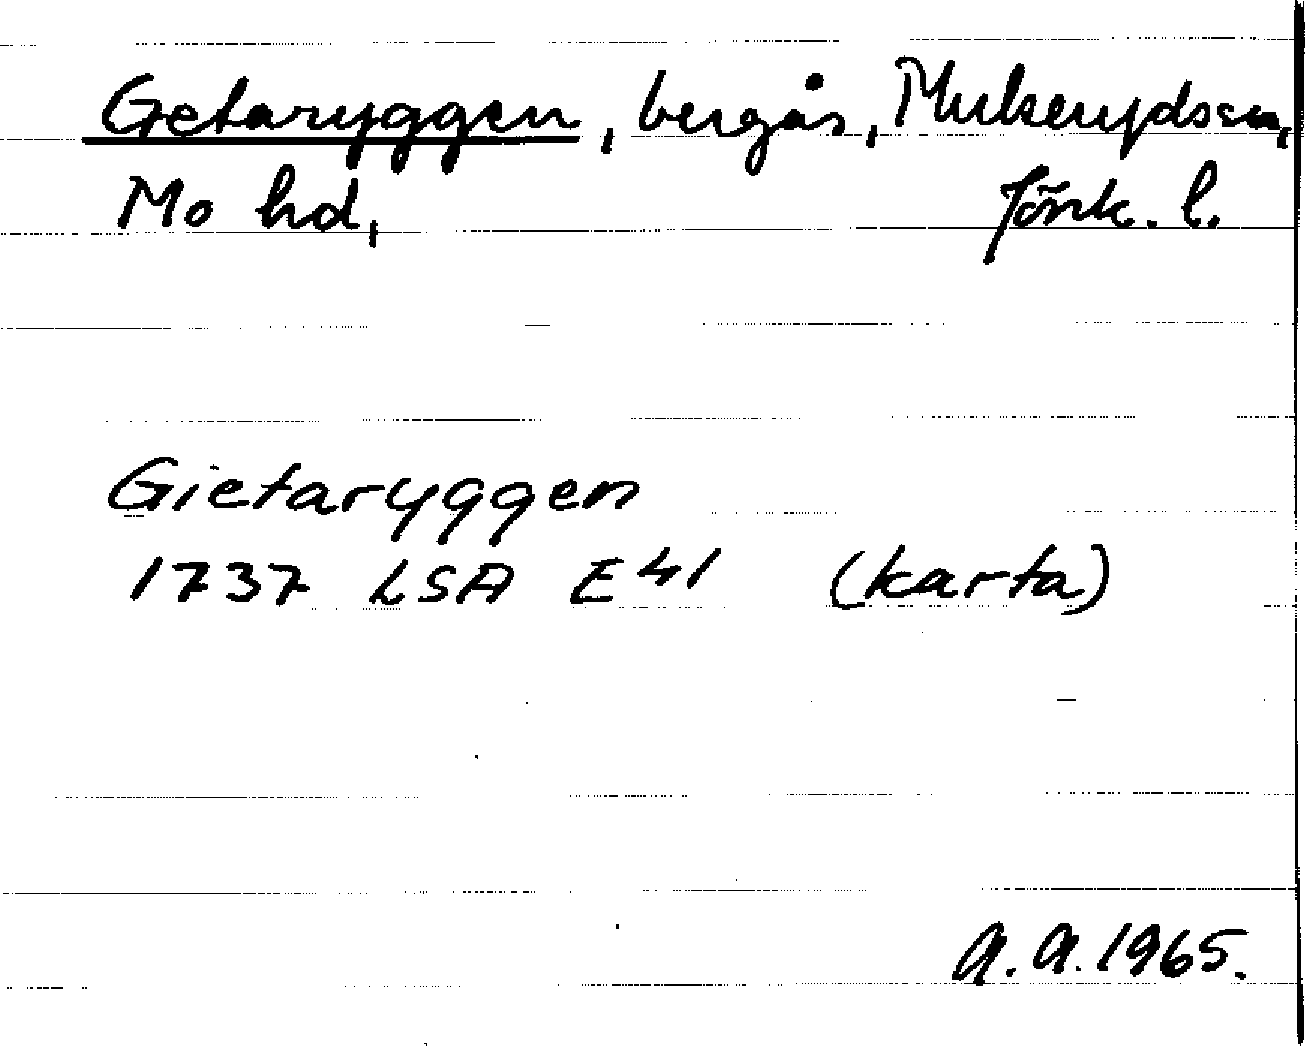 Getaryggen, bergås, Mulserydssn,
Mo hd, Jönk. l.
Gietaryggen
1737 LSA E41 (karta)
A.A. 1965.